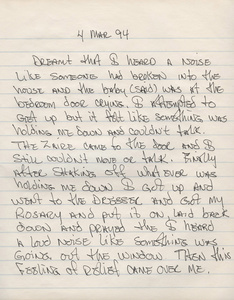 4 MAR 94
DREAMT THAT I HEARD A NOISE
LIKE SOMEONE HAD BROKEN INTO THE
HOUSE AND THE BABY (SAID) WAS AT THE
BEDROOM DOOR CRYING. I ATTEMPTED TO
GET UP BUT IT FELT LIKE SOMETHING WAS
HOLDING ME DOWN AND COULDN'T TALK.
THE CAME TO THE DOOR AND I
STILL COULDN'T MOVE OR TALK. FINALLY
AFTER SHAKING OFF WHATEVER WAS
HOLDING ME DOWN I GOT UP AND
WENT TO THE DRESSER AND GOT MY
ROSARY AND PUT IT ON, LAID BACK
DOWN AND PRAYED THE I HEARD
A LOUD NOISE LIKE SOMETHING WAS
GOING OUT THE WINDOW. THEN THIS
FEELING OF RELIEF CAME OVER ME.